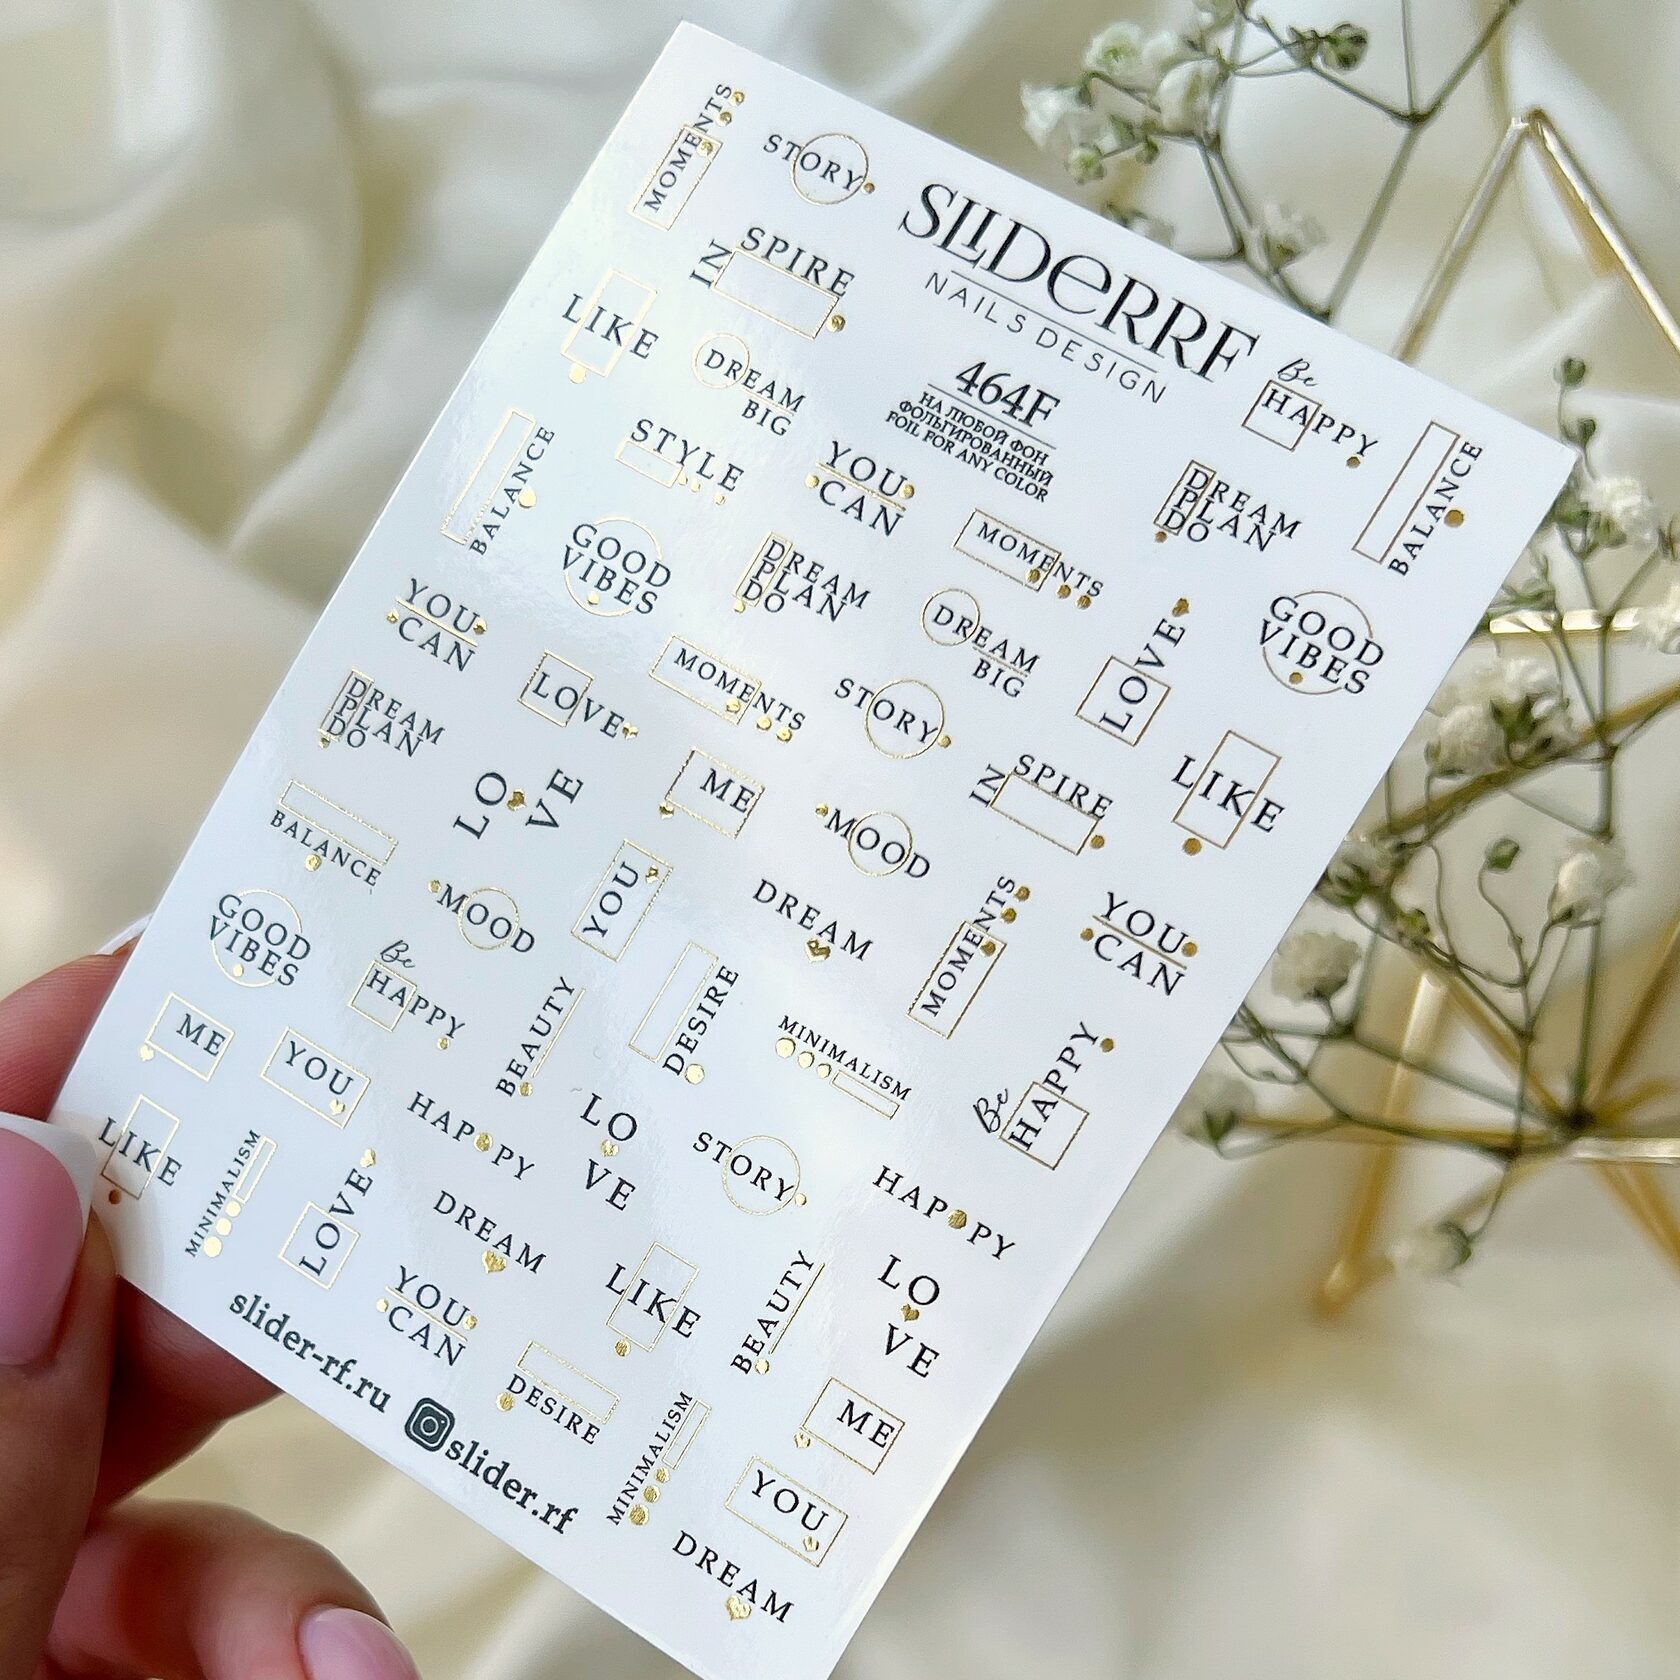 MOMENTS
STORY
SLIDERRF
NAILS DESIGN
464F
НА ЛЮБОЙ ФОН
ФОЛЬГИРОВАННЫЙ
FOIL FOR ANY COLOR
IN
SPIRE
LIKE
DREAM
BIG
Be
HAPPY
BALANCE
BALANCE
STYLE
YOU
CAN
DREAM
PLAN
DO
MOMENTS
GOOD
VIBES
DREAM
PLAN
DO
DREAM
BIG
LOVE
GOOD
VIBES
YOU
CAN
LOVE
MOMENTS
STORY
IN
SPIRE
LIKE
DREAM
PLAN
DO
LO
VE
ME
MOOD
MOMENTS
YOU
CAN
BALANCE
MOOD
YOU
DREAM
GOOD
VIBES
Be
HAPPY
BEAUTY
DESIRE
MINIMALISM
Be
HAPPY
ME
YOU
HAPPY
LO
VE
STORY
HAPPY
LIKE
MINIMALISM
LOVE
DREAM
LIKE
BEAUTY
LO
VE
YOU
CAN
DESIRE
MINIMALISM
ME
YOU
DREAM
slider-rf.ru
slider.rf